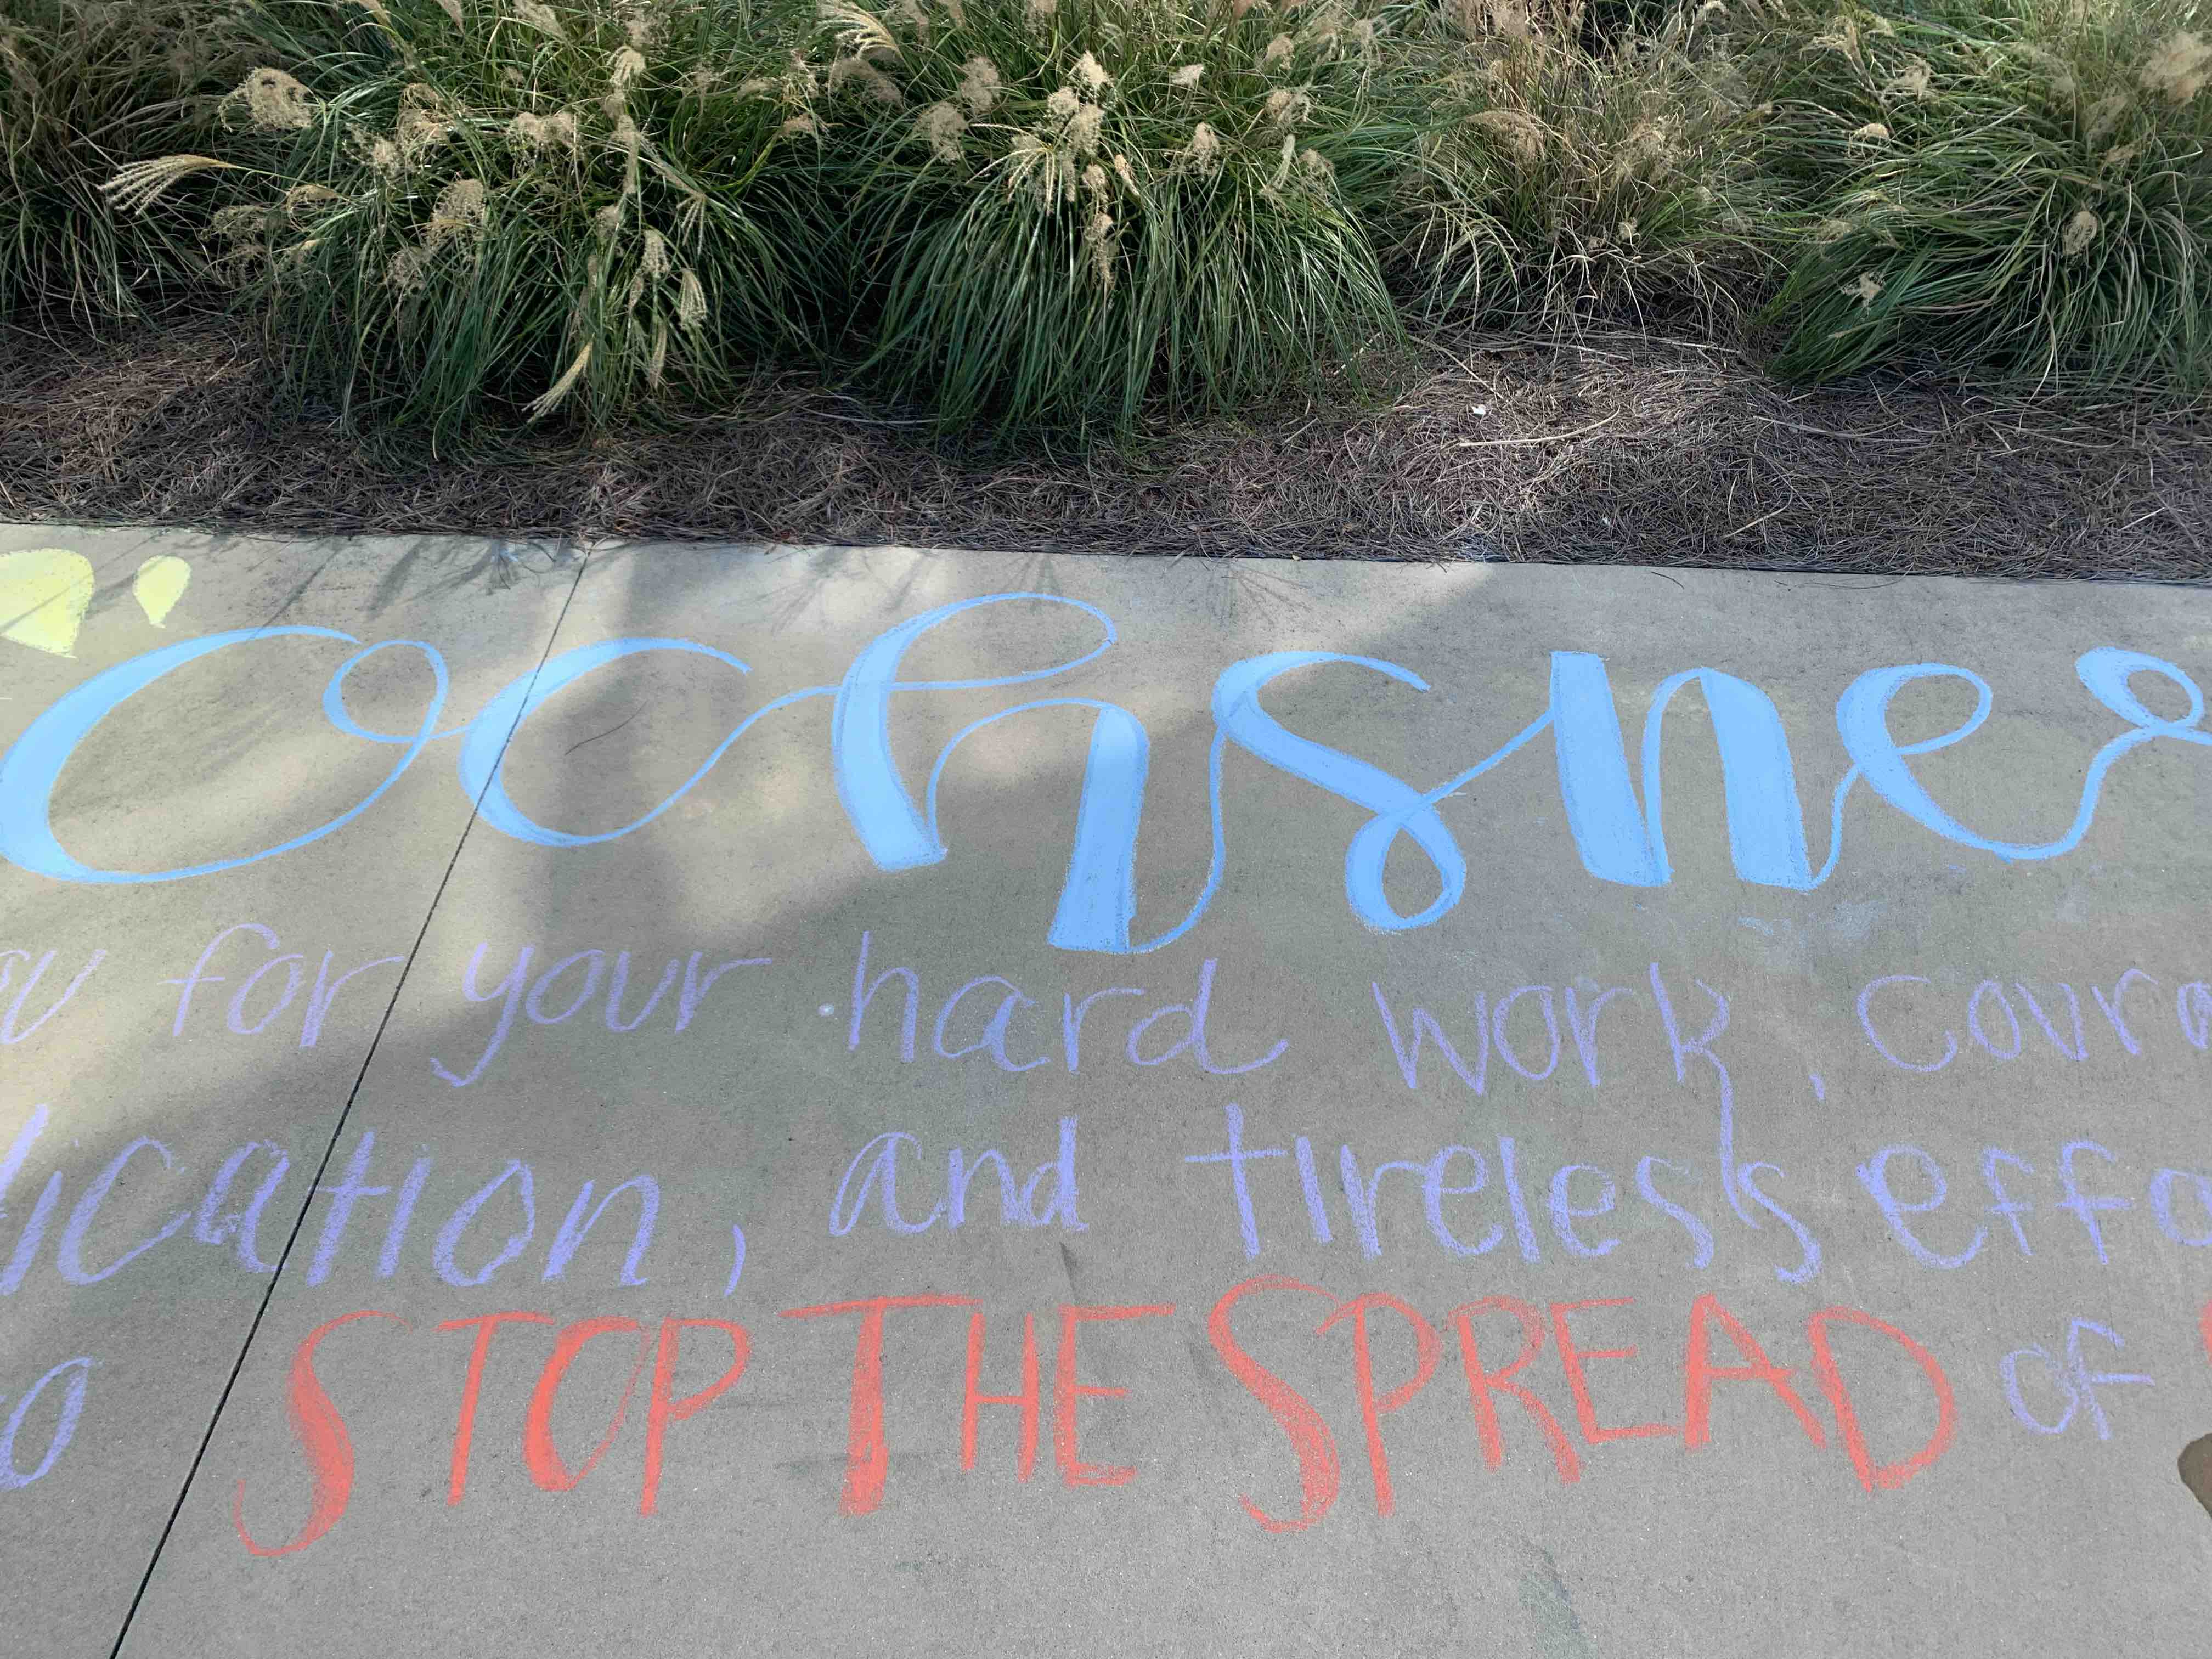 ochsner
ou for your hard work, coura
lication, and tireless effo
o STOP THE SPREAD of